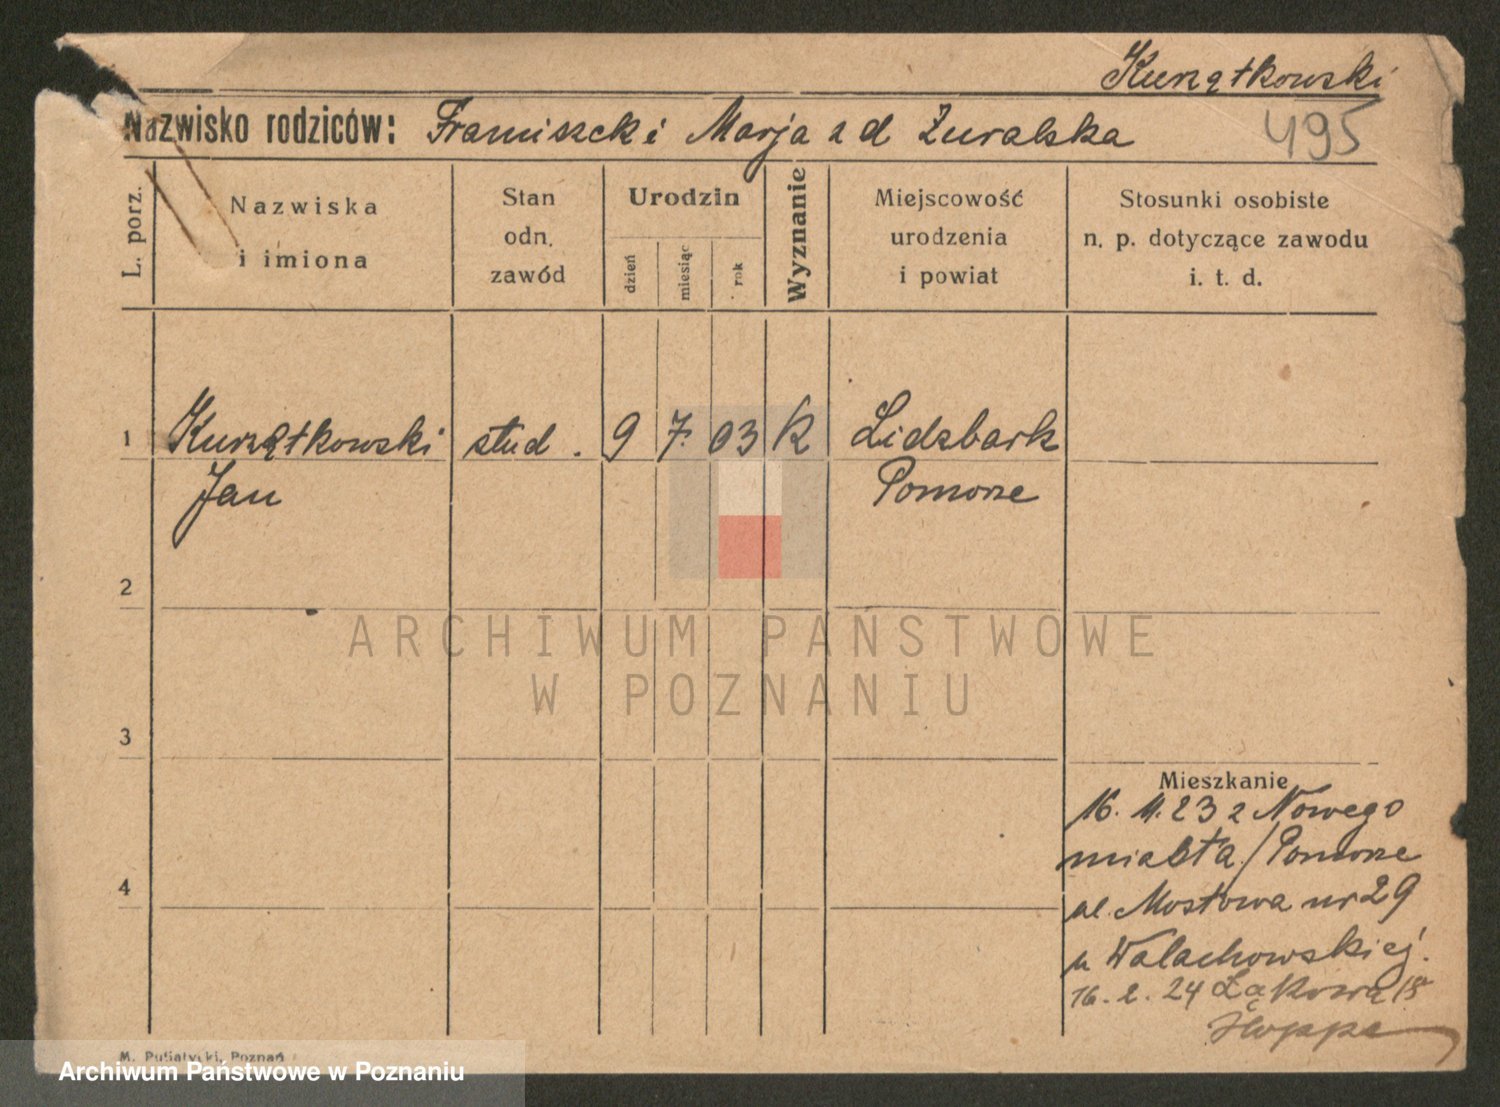 Kurzątkowski
495
Nazwisko rodziców: Franciszek i Marja z d Żuralska
L. porz.
Nazwiska
i imiona
Stan
odn.
zawód
Urodzin
dzień
miesiąc
rok
Wyznanie
Miejscowość
urodzenia
i powiat
Stosunki osobiste
n. p. dotyczące zawodu
i. t. d.
1 Kurzątkowski stud. 9 7. 03 k Lidzbark
Jan Pomorze
2
ARCHIWUM PAŃSTWOWE
W POZNANIU
3
Mieszkanie
16. 11. 23 z Nowego
miasta / Pomorze
4
ul. Mostowa nr 29
u Walachowskiej.
16. 2. 24 Łąkowa 18
Hoppe
M. Putiatycki, Poznań
Archiwum Państwowe w Poznaniu